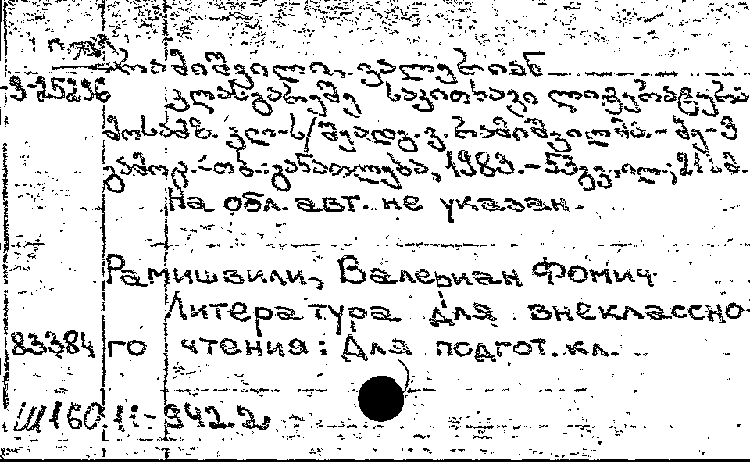 რამიშვილი, ვალერიან
3-25236 კლასგარეშე საკითხავი ლიტერატურა
მოსამზ. კლ-ს/შეადგ. ვ. რამიშვილმა.- მე-3
გამოც.-თბ.:განათლება, 1983.-53გვ.ილ.;21სმ.
На обл. авт. не указан.
Рамишвили, Валериан Фомич
Литература для внеклассно-
83384 го чтения: Для подгот. кл.
Ш160.11-942.2